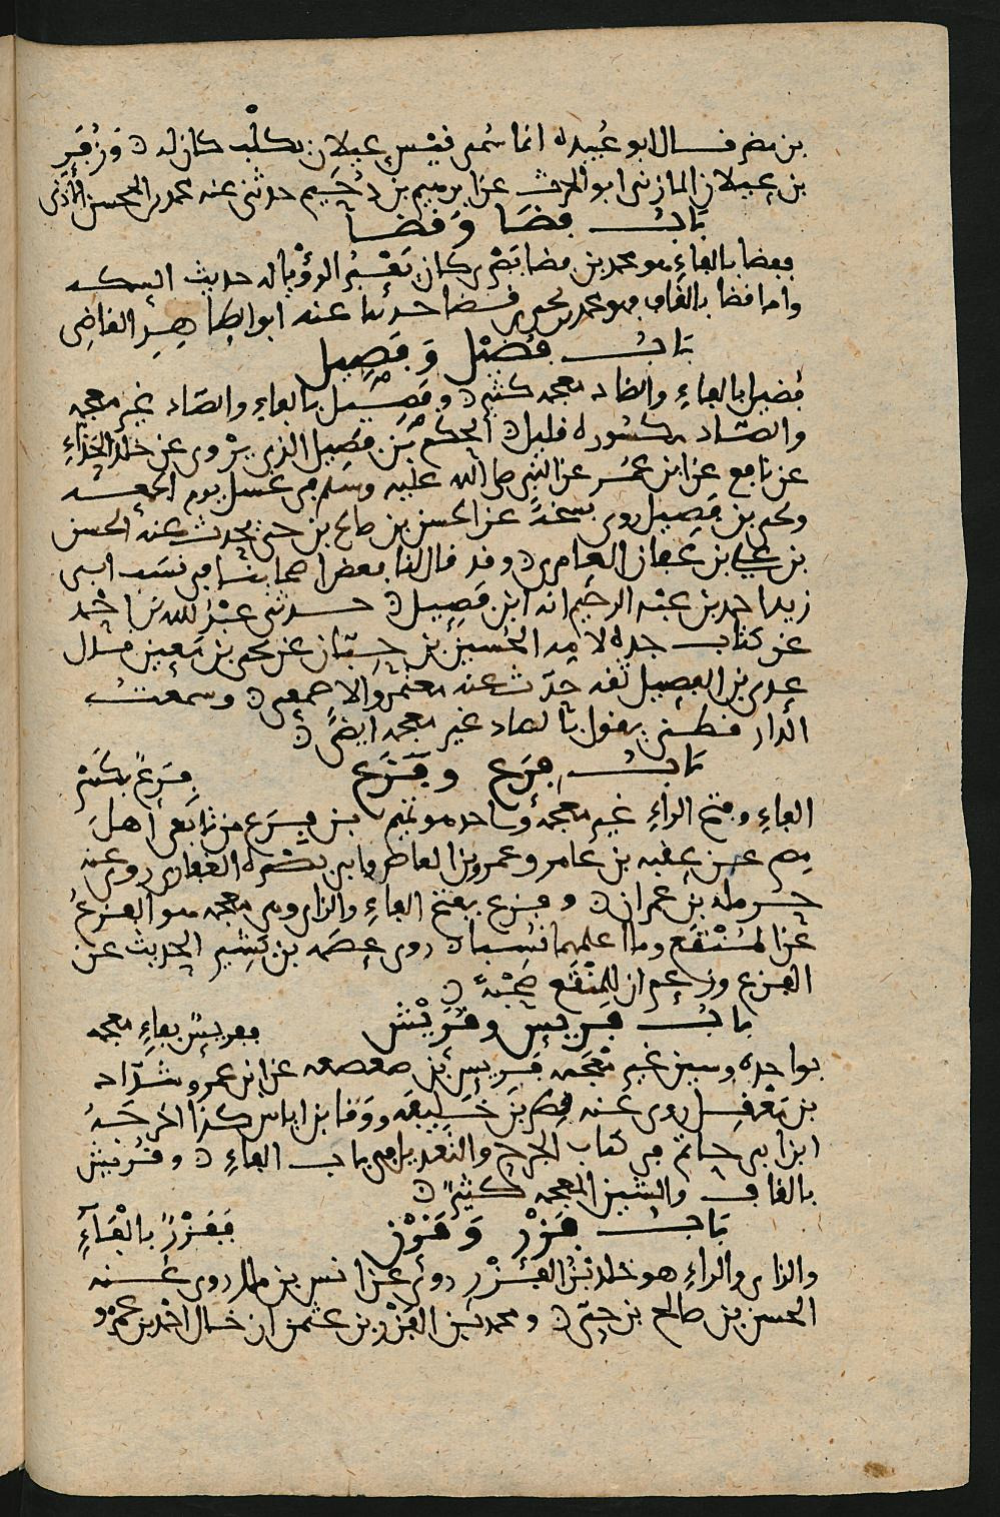 بن مضر قال ابو عبيدة انما سمى قيس عيلان بكلب كان له وزفر
بن عيلان المازنى ابو الحرث عن ابرهيم بن دحيم حدثنى عنه محمد بن المحسن الأذنى
باب فضا وقضا
ففضا بالفاء هو محمد بن فضا بصرى كان يعبر الرؤيا له حديث السكة
واما قضا بالقاف فهو محمد بن يحيى بن قضا حدثنا عنه ابو الطاهر القاضى
باب فضيل وفصيل
فضيل بالفاء والضاد معجمة كثير وفصيل بالفاء والصاد غير معجمة
والصاد مكسورة قليل الحكم بن فصيل الذى يروى عن خلد الحذاء
عن نافع عن ابن عمر عن النبى صلى الله عليه وسلم فى غسل يوم الجمعة
ويحيى بن فصيل روى نسخة عن الحسن بن صالح بن حى يحدث عنه الحسن
بن على بن عفان العامرى وقد قال لنا بعض اصحابنا فى نسب ابى
زيد احمد بن عبد الرحيم انه ابن فصيل حدثنى عبد الله بن احمد
عن كتاب جده لامه الحسين بن حبان عن يحيى بن معين قال
عدى بن الفصيل ثقة حدث عنه معتمر والاصمعى وسمعت
الدارقطنى يقول بالصاد غير معجمة ايضا
باب فرع وفزع فرع بكسر
الفاء وفتح الراء غير معجمة واحد هو تميم بن فرع من تابعى اهل
مصر عن عقبة بن عامر وعمرو بن العاص وابى بصرة الغفارى روى عنه
حرملة بن عمران وفزع بفتح الفاء والزاى وهى معجمة هو الفزع
عن المنقع وما اعلمهما نسبا روى عصمة بن بشير الحديث عن
الفزع وزعم ان للمنقع صحبة
باب فريس وقريش ففريس بفاء معجمة
بواحدة وسين غير معجمة فريس بن صعصعة عن ابن عمر وشداد
بن معقل روى عنه فطر بن خليفة ووقا بن اياس كذا اخرجه
ابن ابى حاتم فى كتاب الجرح والتعديل فى باب الفاء وقريش
بالقاف والشين المعجمة كثير
باب فزر وقزز ففزر بالفاء
والزاى والراء هو خلد بن الفزر روى عن انس بن ملك روى عنه
الحسن بن صالح بن حى ومحمد بن الفزر بن عثمن خال احمد بن عمرو